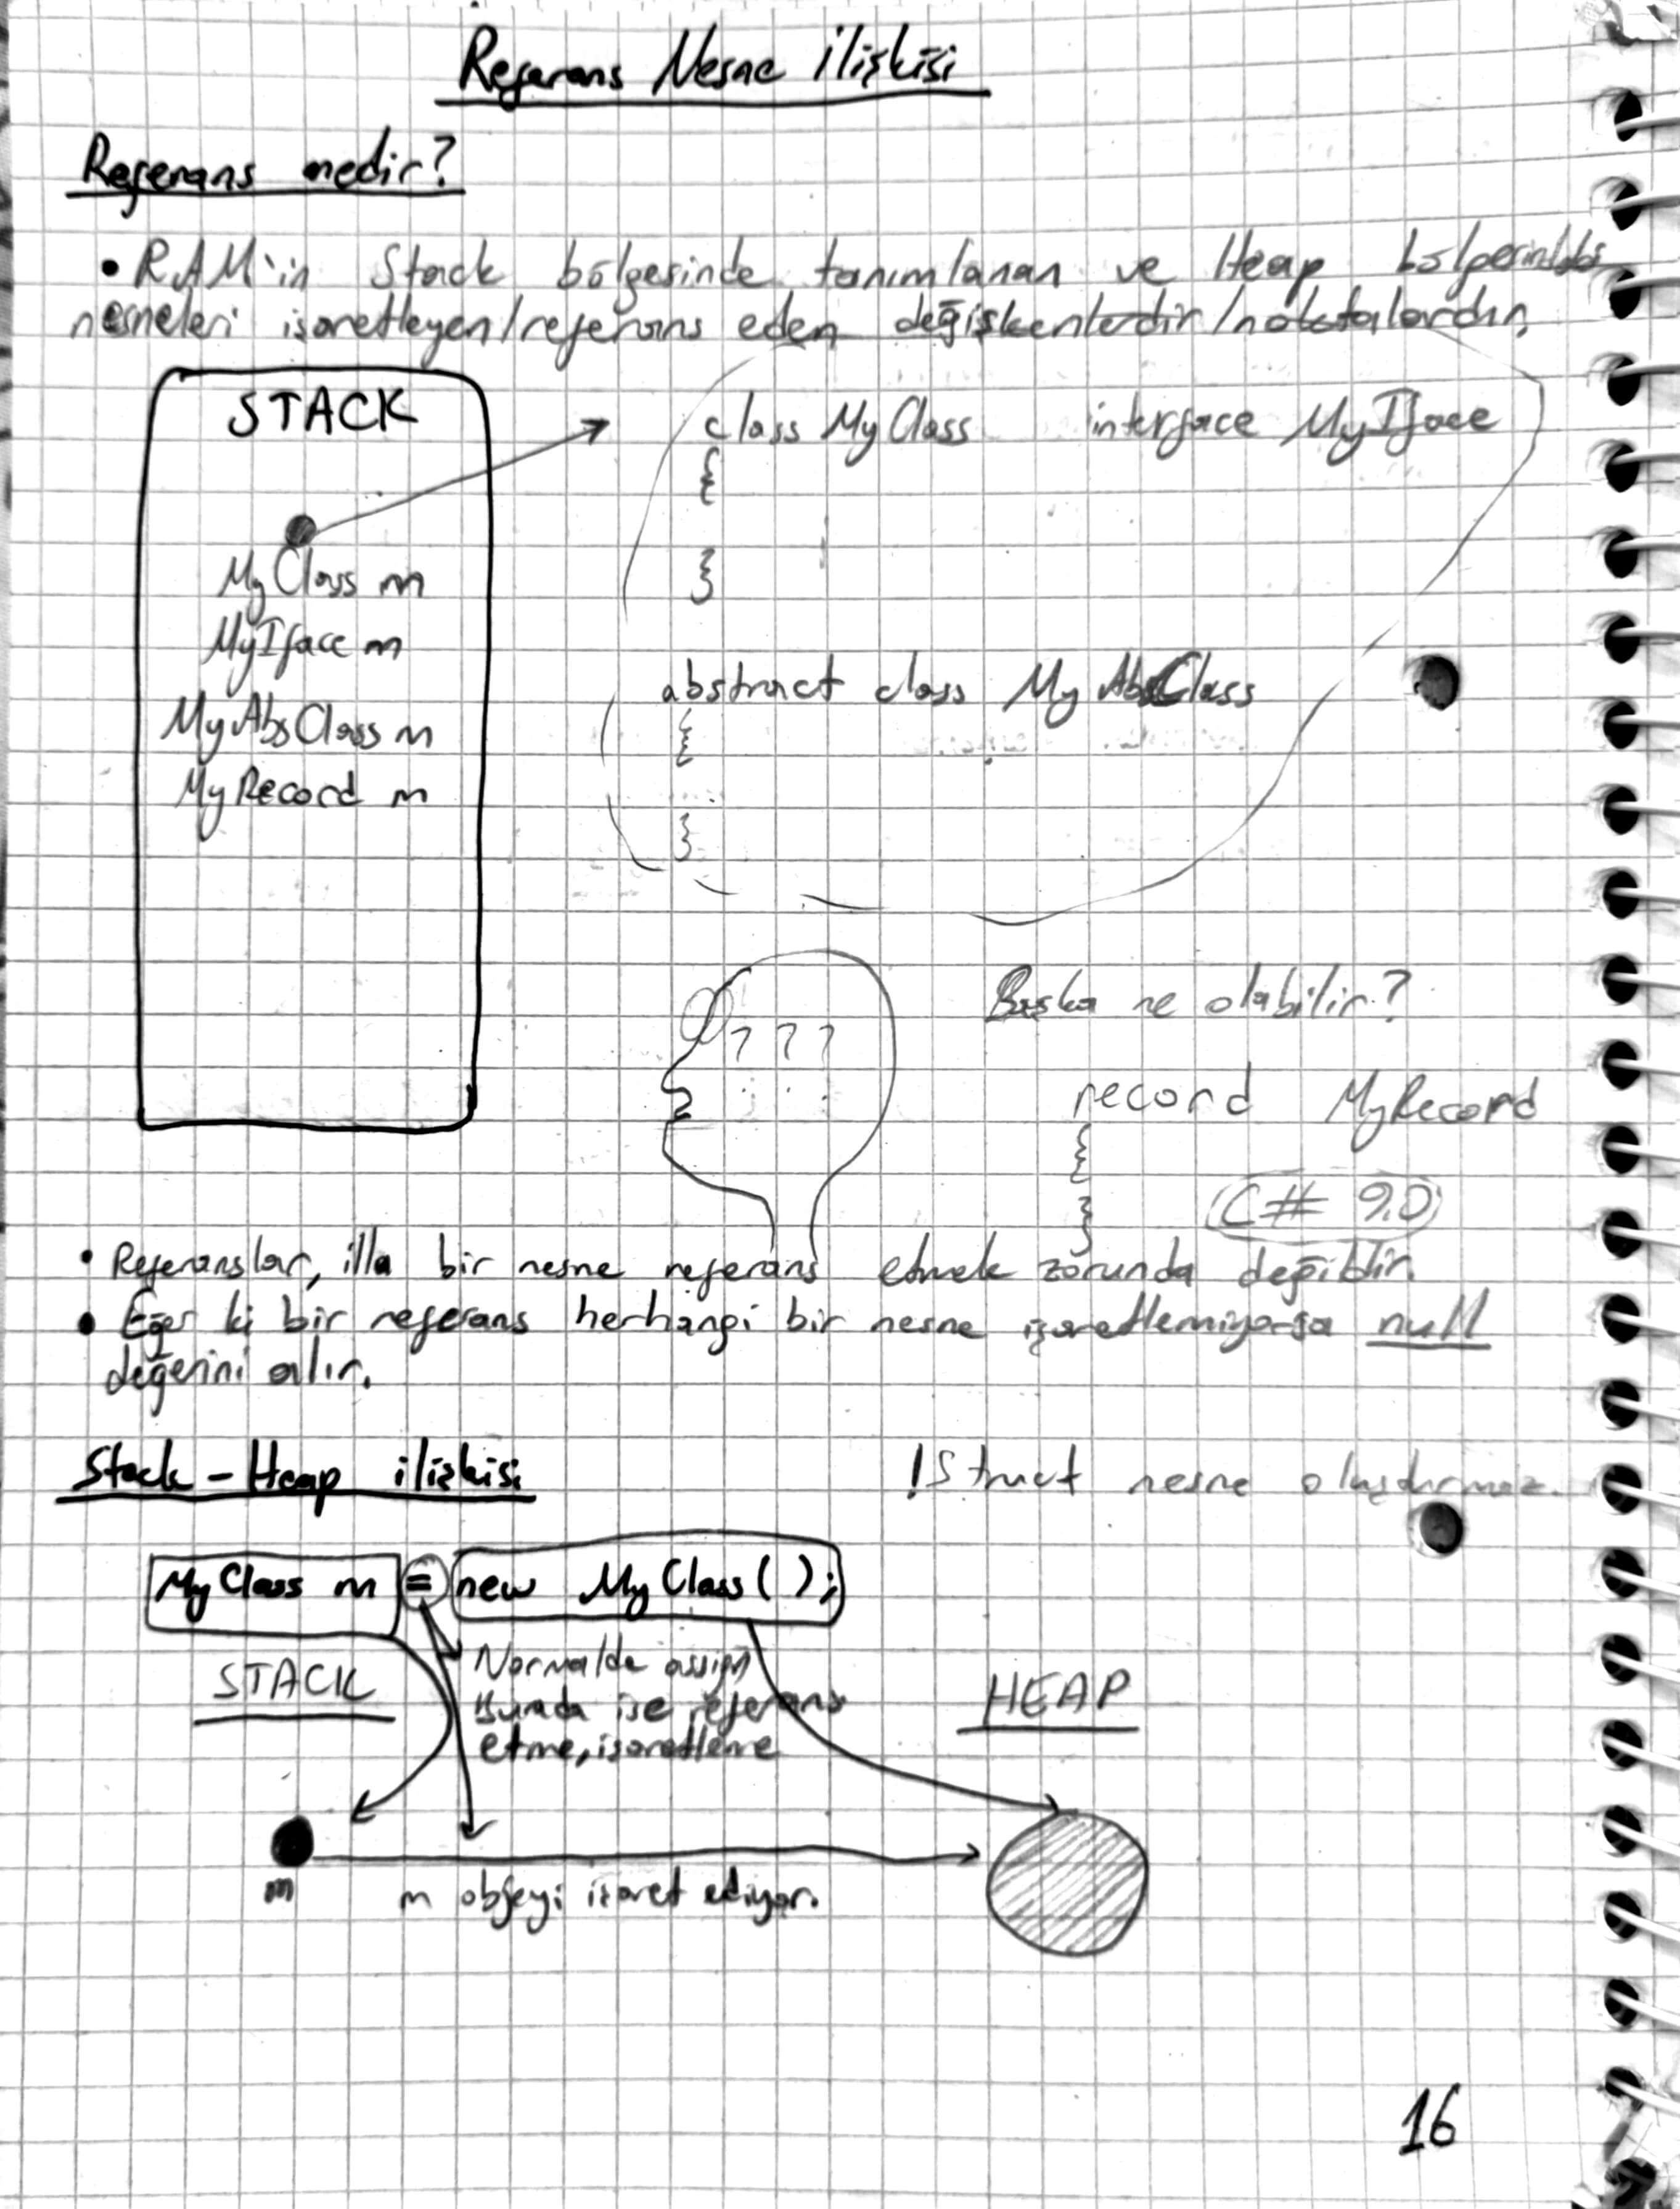 Referans Nesne ilişkisi
Referans nedir?
• RAM'in Stack bölgesinde tanımlanan ve Heap bölgesindeki
nesneleri işaretleyen/referans eden değişkenlerdir/noktalardır.
STACK
class MyClass interface MyIface
{
}
MyClass m
MyIface m
MyAbsClass m
MyRecord m
abstract class MyAbsClass
{
}
Başka ne olabilir?
? ? ?
record MyRecord
{
}
C# 9.0
• Referanslar, illa bir nesne referans etmek zorunda değildir.
• Eğer ki bir referans herhangi bir nesne işaretlemiyorsa null
değerini alır.
Stack - Heap ilişkisi
! Struct nesne oluşturmaz.
MyClass m = new MyClass();
STACK
Normalde assign
Burada ise referans
etme, işaretleme
HEAP
m
m objeyi işaret ediyor.
16